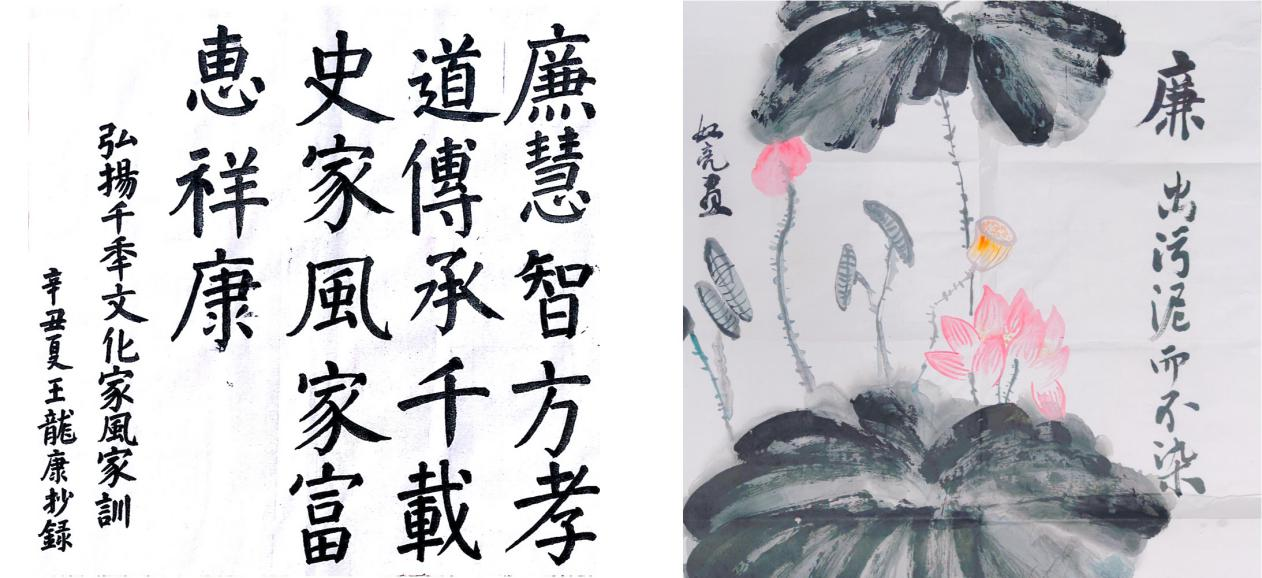 廉慧智方孝
道傳承千載
史家風家富
惠祥康
弘揚千季文化家風家訓
辛丑夏王龍康抄録
廉
出污泥而不染
如亮畫